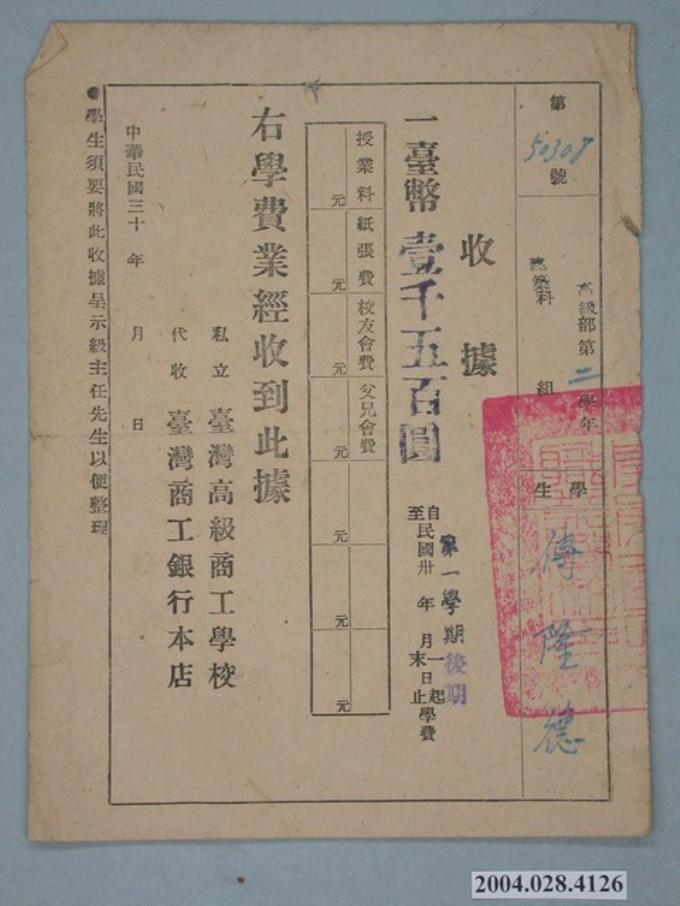 第50308號
高級部第二學年
建築科 組
學生 傅隆德
收據
一臺幣壹千五百圓
第一學期後期
自民國卅 年 月一日起
至 末日止
學費
授業料 元
紙張費 元
校友會費 元
父兄會費 元
元
元
元
右學費業經收到此據
私立 臺灣高級商工學校
代收 臺灣商工銀行本店
中華民國三十 年 月 日
●學生須要將此收據呈示級主任先生以便整理
2004.028.4126